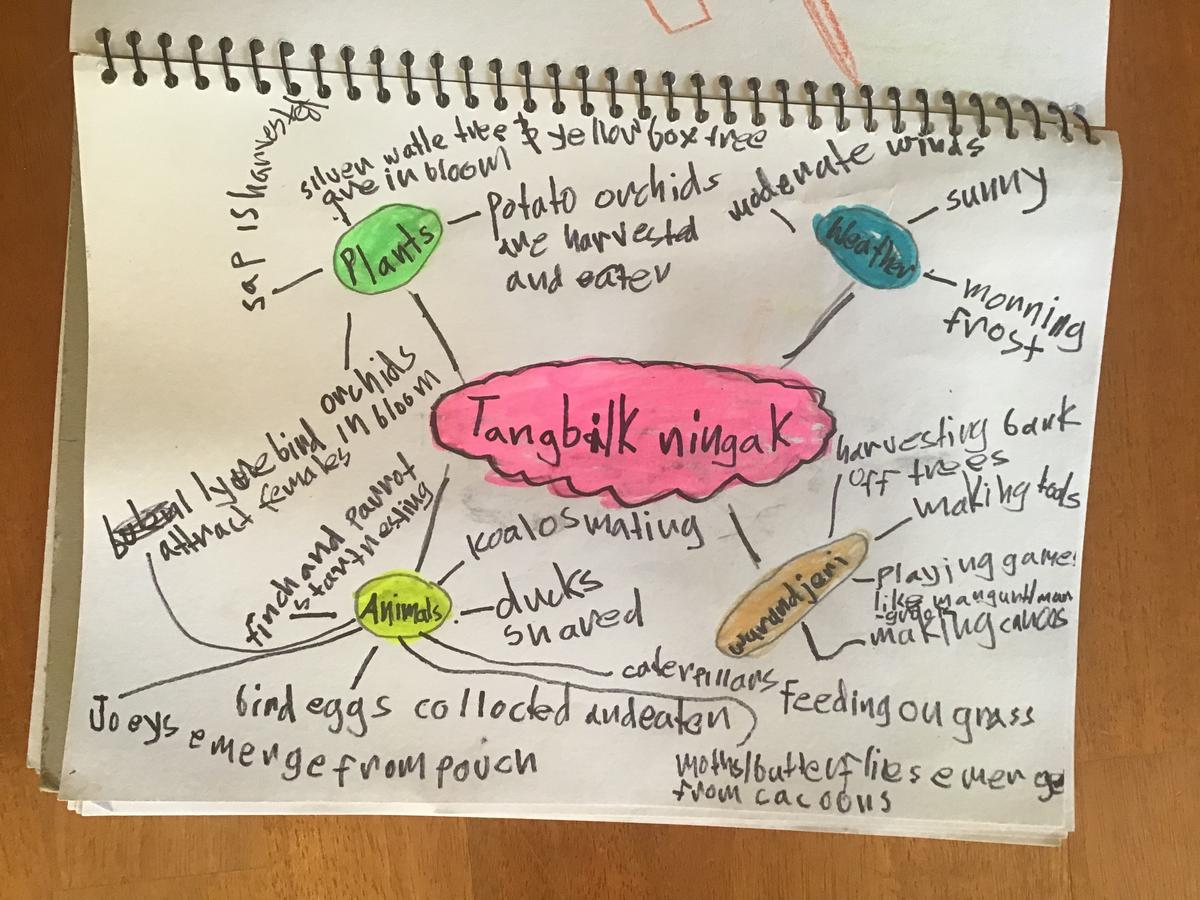 Tangbilk ningak
Plants
sap is harvested
silver watle tree & yellow box tree
are in bloom
potato orchids
are harvested
and eaten
orchids
in bloom
Weather
moderate winds
sunny
morning
frost
wurundjeri
harvesting bark
off trees
making tools
playing games
like
making canoos
Animals
lyre bird
attract females
finch and parrot
start nesting
koalos mating
ducks
snared
caterpillars
feeding on grass
moths/butterflies emerge
from cacoons
bird eggs collocted and eaten
Joeys emerge from pouch